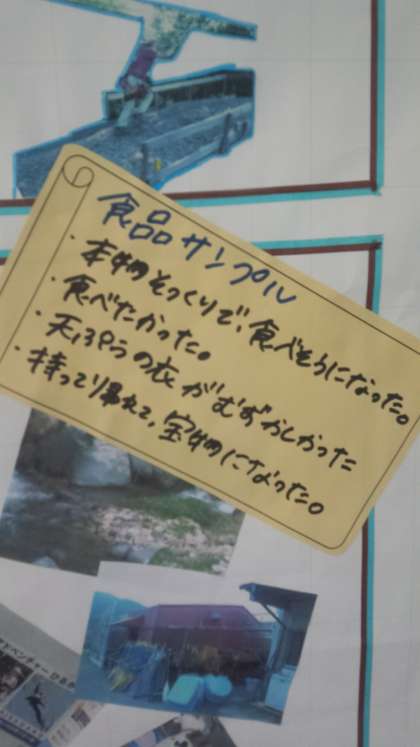 食品サンプル
・本物そっくりで、食べそうになった。
・食べたかった。
・天ぷらの衣がむずかしかった
・持って帰れて、宝物になった。